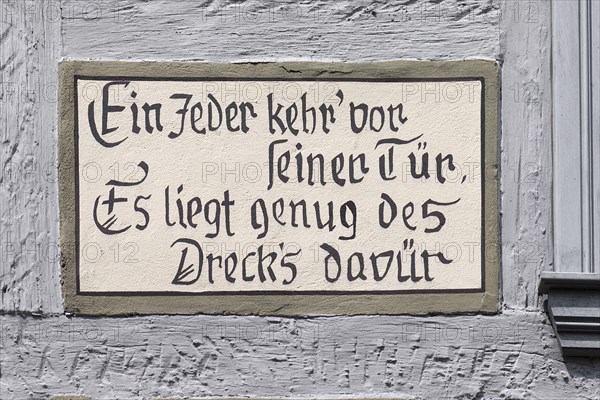 Ein Jeder kehr' vor
seiner Tür,
Es liegt genug des
Dreck's davür